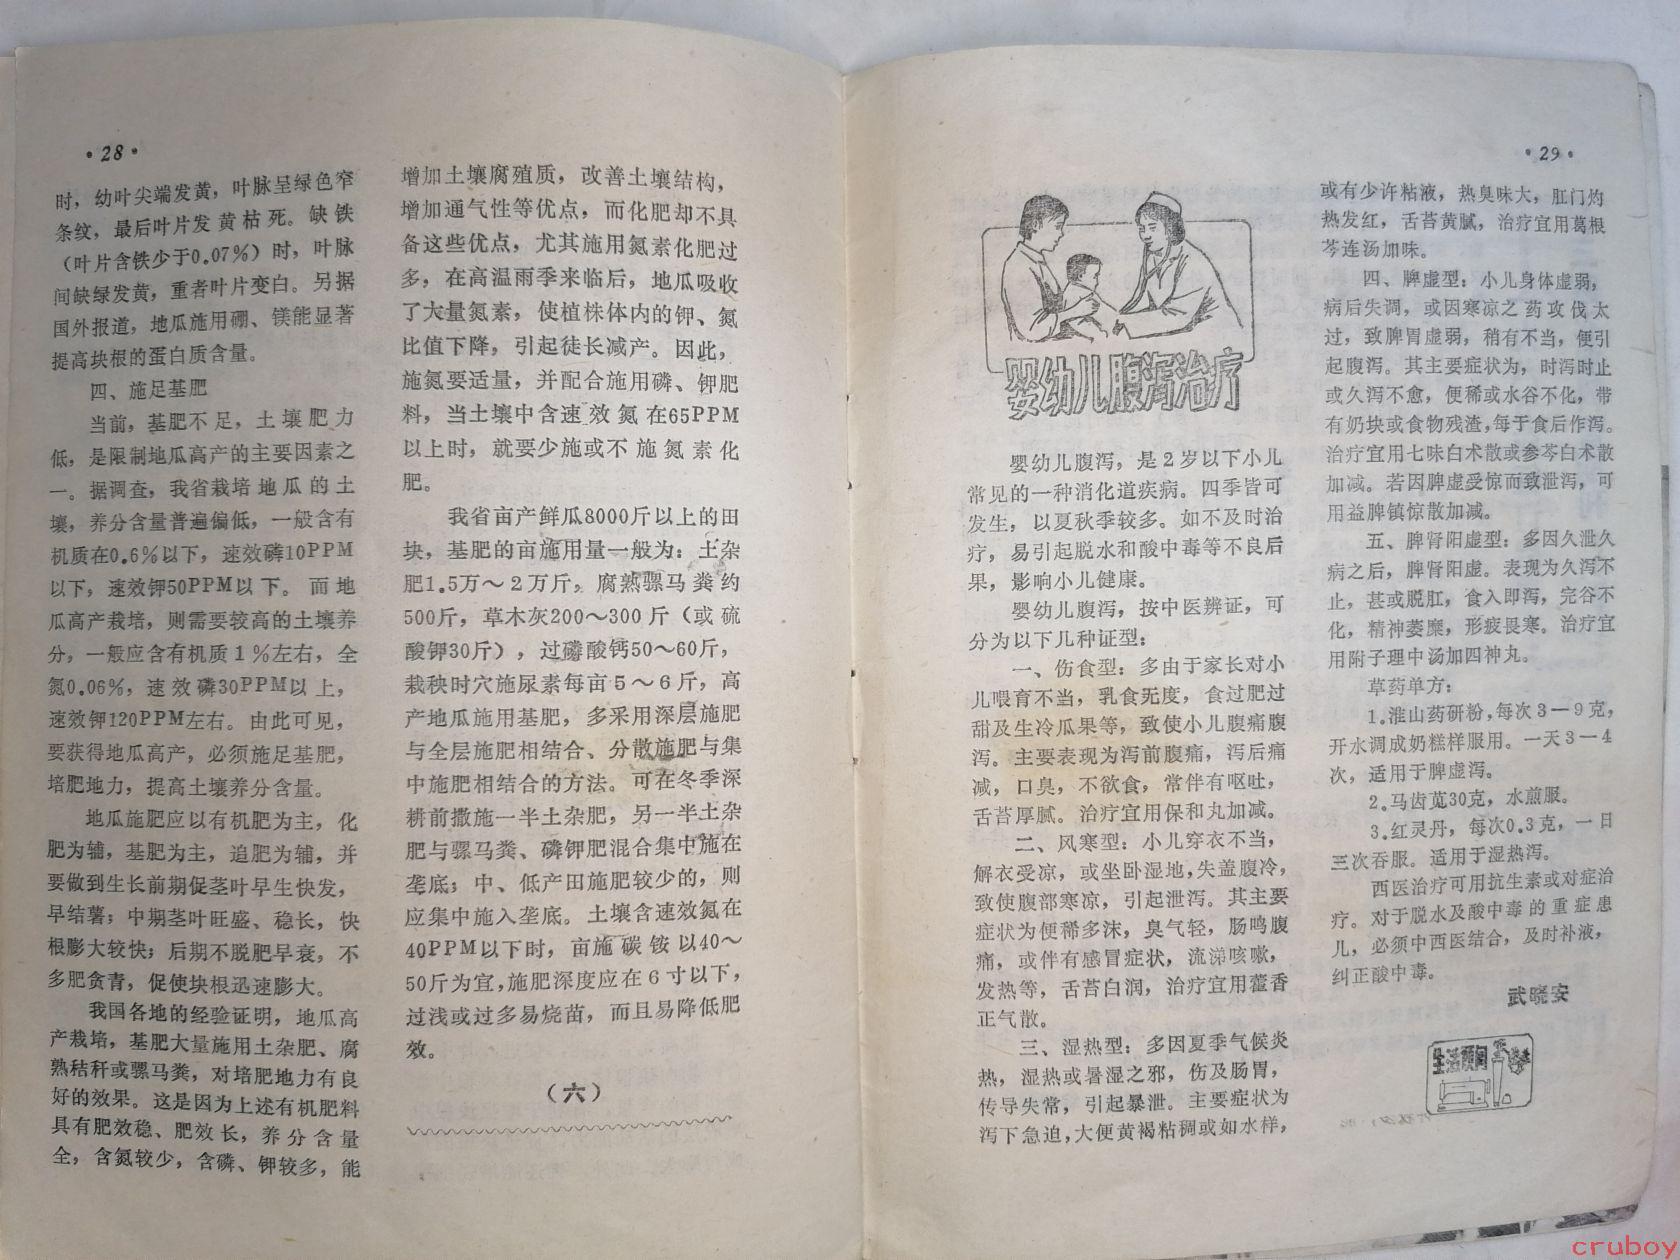 ·28·
时，幼叶尖端发黄，叶脉呈绿色窄
条纹，最后叶片发黄枯死。缺铁
（叶片含铁少于0.07%）时，叶脉
间缺绿发黄，重者叶片变白。另据
国外报道，地瓜施用硼、镁能显著
提高块根的蛋白质含量。
四、施足基肥
当前，基肥不足，土壤肥力
低，是限制地瓜高产的主要因素之
一。据调查，我省栽培地瓜的土
壤，养分含量普遍偏低，一般含有
机质在0.6%以下，速效磷10PPM
以下，速效钾50PPM以下。而地
瓜高产栽培，则需要较高的土壤养
分，一般应含有机质1%左右，全
氮0.06%，速效磷30PPM以上，
速效钾120PPM左右。由此可见，
要获得地瓜高产，必须施足基肥，
培肥地力，提高土壤养分含量。
地瓜施肥应以有机肥为主，化
肥为辅，基肥为主，追肥为辅，并
要做到生长前期促茎叶早生快发，
早结薯；中期茎叶旺盛、稳长，快
根膨大较快；后期不脱肥早衰，不
多肥贪青，促使块根迅速膨大。
我国各地的经验证明，地瓜高
产栽培，基肥大量施用土杂肥、腐
熟秸秆或骡马粪，对培肥地力有良
好的效果。这是因为上述有机肥料
具有肥效稳、肥效长，养分含量
全，含氮较少，含磷、钾较多，能
增加土壤腐殖质，改善土壤结构，
增加通气性等优点，而化肥却不具
备这些优点，尤其施用氮素化肥过
多，在高温雨季来临后，地瓜吸收
了大量氮素，使植株体内的钾、氮
比值下降，引起徒长减产。因此，
施氮要适量，并配合施用磷、钾肥
料，当土壤中含速效氮在65PPM
以上时，就要少施或不施氮素化
肥。
我省亩产鲜瓜8000斤以上的田
块，基肥的亩施用量一般为：土杂
肥1.5万～2万斤，腐熟骡马粪约
500斤，草木灰200～300斤（或硫
酸钾30斤），过磷酸钙50～60斤，
栽秧时穴施尿素每亩5～6斤，高
产地瓜施用基肥，多采用深层施肥
与全层施肥相结合、分散施肥与集
中施肥相结合的方法。可在冬季深
耕前撒施一半土杂肥，另一半土杂
肥与骡马粪、磷钾肥混合集中施在
垄底；中、低产田施肥较少的，则
应集中施入垄底。土壤含速效氮在
40PPM以下时，亩施碳铵以40～
50斤为宜，施肥深度应在6寸以下，
过浅或过多易烧苗，而且易降低肥
效。
（六）
·29·
婴幼儿腹泻治疗
婴幼儿腹泻，是2岁以下小儿
常见的一种消化道疾病。四季皆可
发生，以夏秋季较多。如不及时治
疗，易引起脱水和酸中毒等不良后
果，影响小儿健康。
婴幼儿腹泻，按中医辨证，可
分为以下几种证型：
一、伤食型：多由于家长对小
儿喂育不当，乳食无度，食过肥过
甜及生冷瓜果等，致使小儿腹痛腹
泻。主要表现为泻前腹痛，泻后痛
减，口臭，不欲食，常伴有呕吐，
舌苔厚腻。治疗宜用保和丸加减。
二、风寒型：小儿穿衣不当，
解衣受凉，或坐卧湿地，失盖腹冷，
致使腹部寒凉，引起泄泻。其主要
症状为便稀多沫，臭气轻，肠鸣腹
痛，或伴有感冒症状，流涕咳嗽，
发热等，舌苔白润，治疗宜用藿香
正气散。
三、湿热型：多因夏季气候炎
热，湿热或暑湿之邪，伤及肠胃，
传导失常，引起暴泄。主要症状为
泻下急迫，大便黄褐粘稠或如水样，
或有少许粘液，热臭味大，肛门灼
热发红，舌苔黄腻，治疗宜用葛根
芩连汤加味。
四、脾虚型：小儿身体虚弱，
病后失调，或因寒凉之药攻伐太
过，致脾胃虚弱，稍有不当，便引
起腹泻。其主要症状为，时泻时止
或久泻不愈，便稀或水谷不化，带
有奶块或食物残渣，每于食后作泻。
治疗宜用七味白术散或参苓白术散
加减。若因脾虚受惊而致泄泻，可
用益脾镇惊散加减。
五、脾肾阳虚型：多因久泄久
病之后，脾肾阳虚。表现为久泻不
止，甚或脱肛，食入即泻，完谷不
化，精神萎糜，形疲畏寒。治疗宜
用附子理中汤加四神丸。
草药单方：
1.淮山药研粉，每次3—9克，
开水调成奶糕样服用。一天3—4
次，适用于脾虚泻。
2.马齿苋30克，水煎服。
3.红灵丹，每次0.3克，一日
三次吞服。适用于湿热泻。
西医治疗可用抗生素或对症治
疗。对于脱水及酸中毒的重症患
儿，必须中西医结合，及时补液，
纠正酸中毒。
武晓安
生活顾问
cruboy